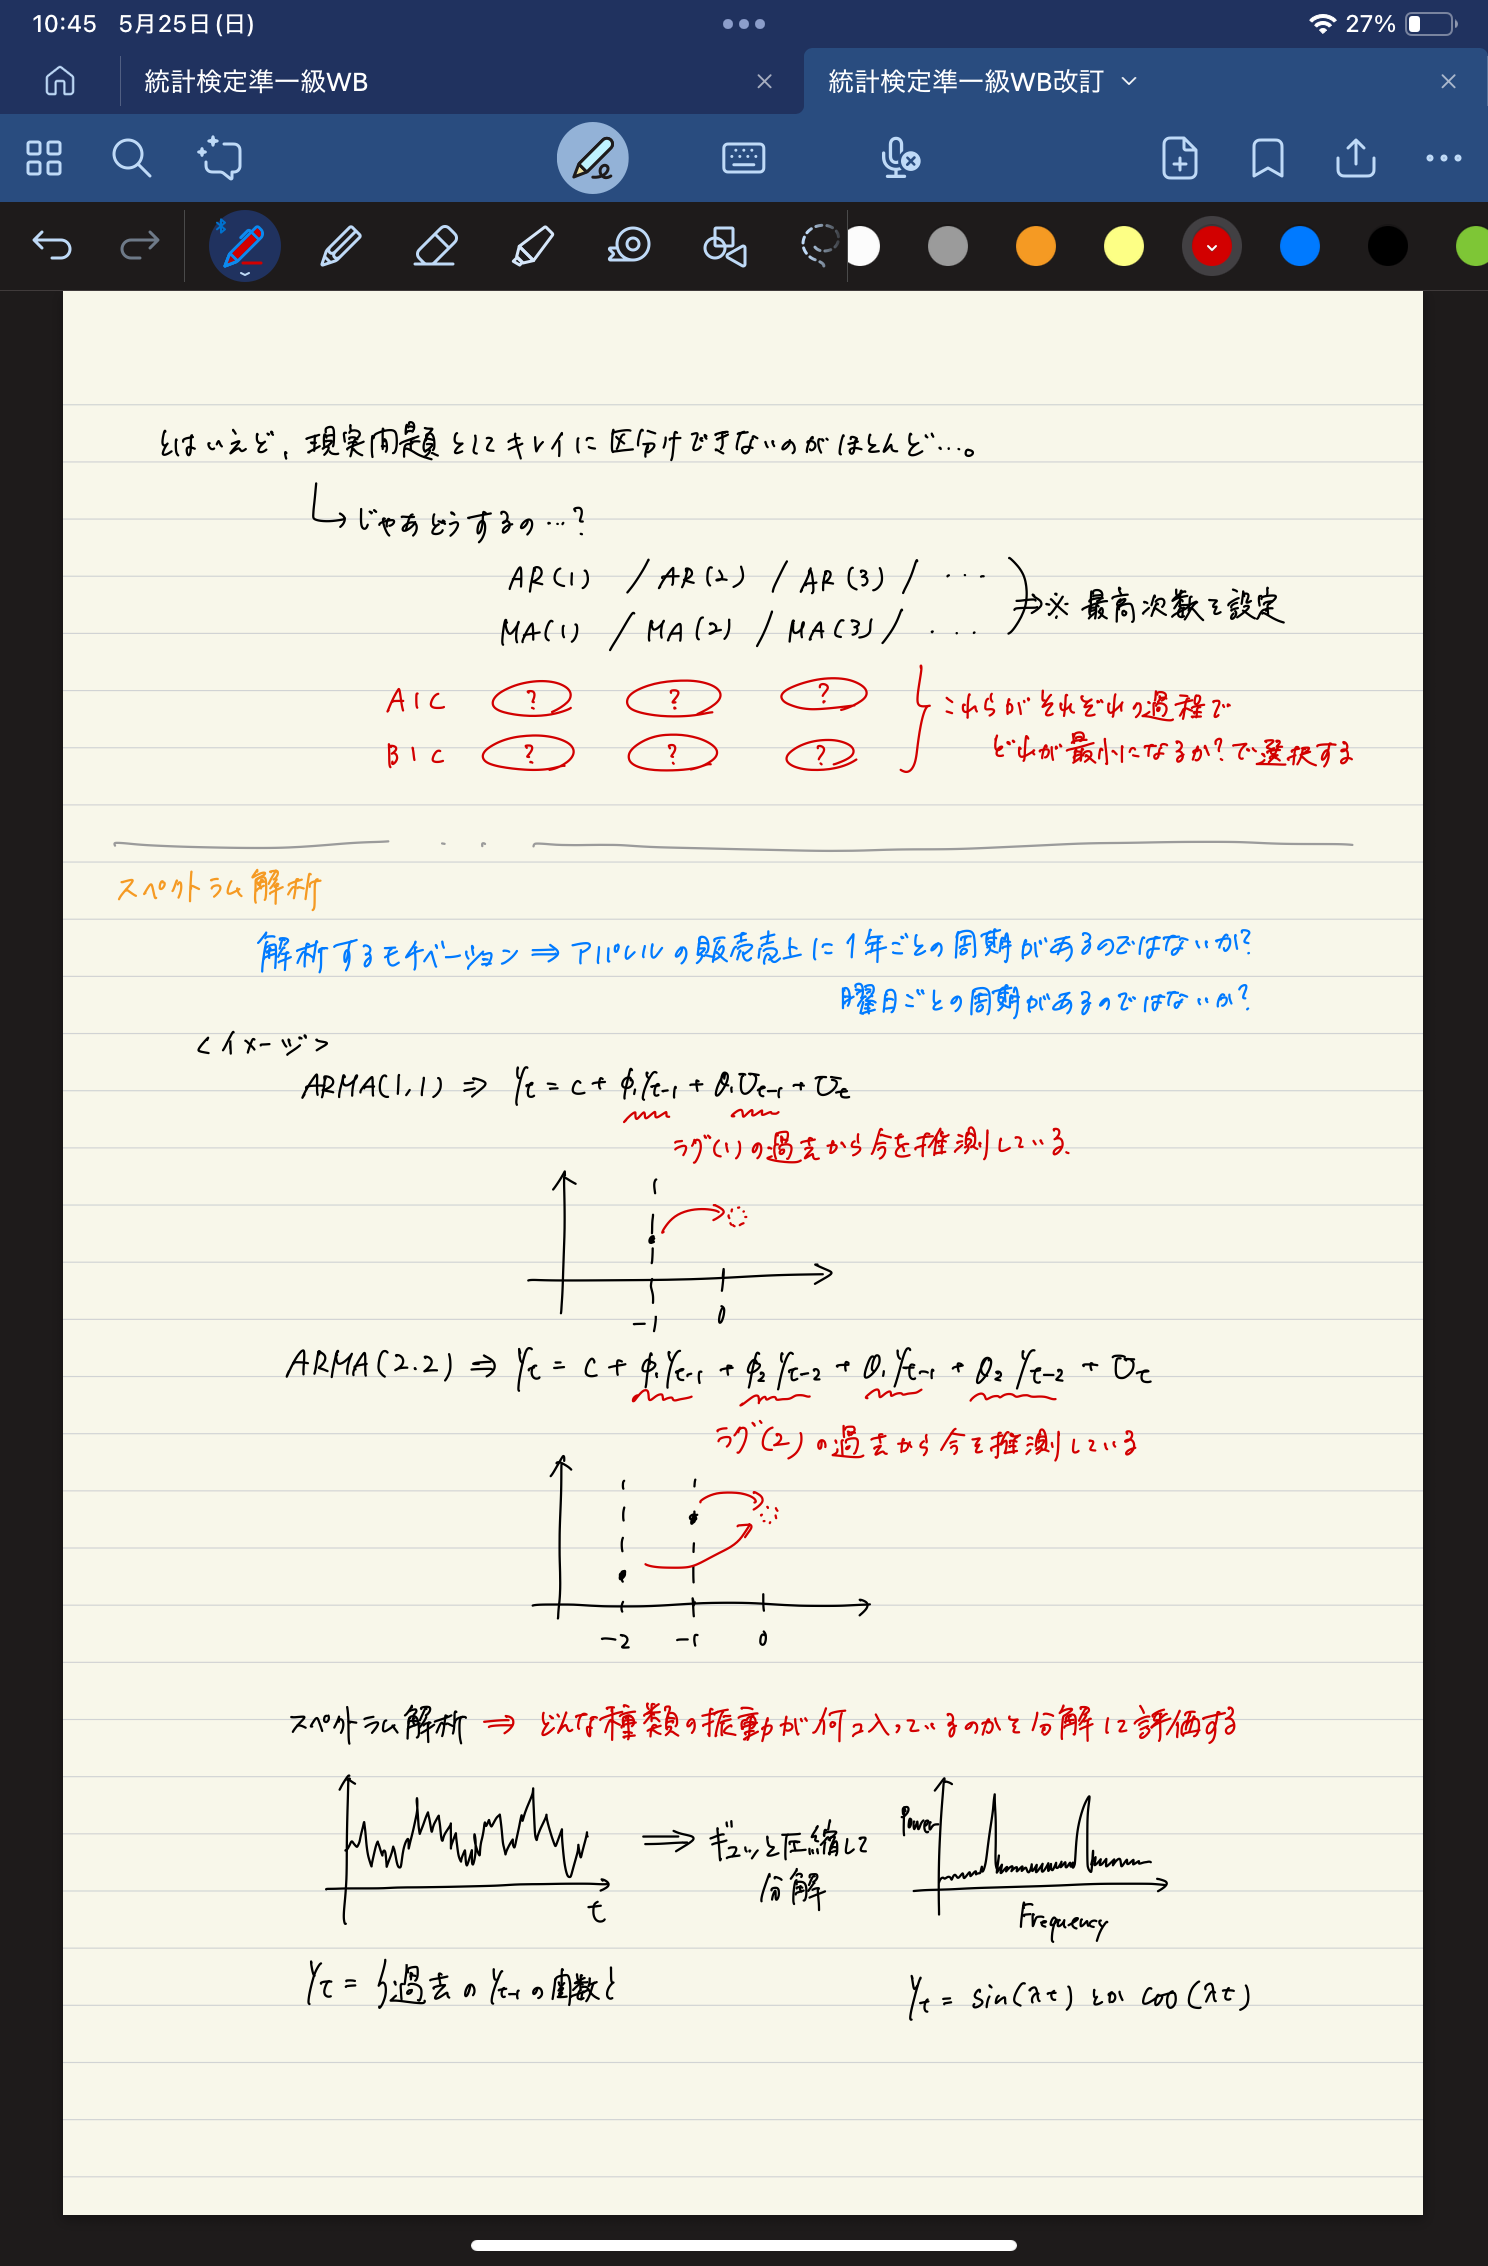 10:45 5月25日(日)
27%
統計検定準一級WB
統計検定準一級WB改訂
とはいえど、現実問題としてキレイに区分けできないのがほとんど…。
じゃあどうするの…?
AR(1) / AR(2) / AR(3) / ...
MA(1) / MA(2) / MA(3) / ...
⇒※ 最高次数を設定
AIC ? ? ?
BIC ? ? ?
これらがそれぞれの過程で
どれが最小になるか?で選択する
スペクトラム解析
解析するモチベーション ⇒ アパレルの販売売上に1年ごとの周期があるのではないか?
曜日ごとの周期があるのではないか?
<イメージ>
ARMA(1,1) ⇒ Yt = c + φ1Yt-1 + θ1Ut-1 + Ut
ラグ(1)の過去から今を推測している.
-1 0
ARMA(2.2) ⇒ Yt = c + φ1Yt-1 + φ2Yt-2 + θ1Yt-1 + θ2Yt-2 + Ut
ラグ(2)の過去から今を推測している
-2 -1 0
スペクトラム解析 ⇒ どんな種類の振動が何コ入っているのかを分解して評価する
t
⇒ ギュッと圧縮して
分解
Power
Frequency
Yt = {過去のYt-1の関数}
Yt = sin(λt) とか cos(λt)